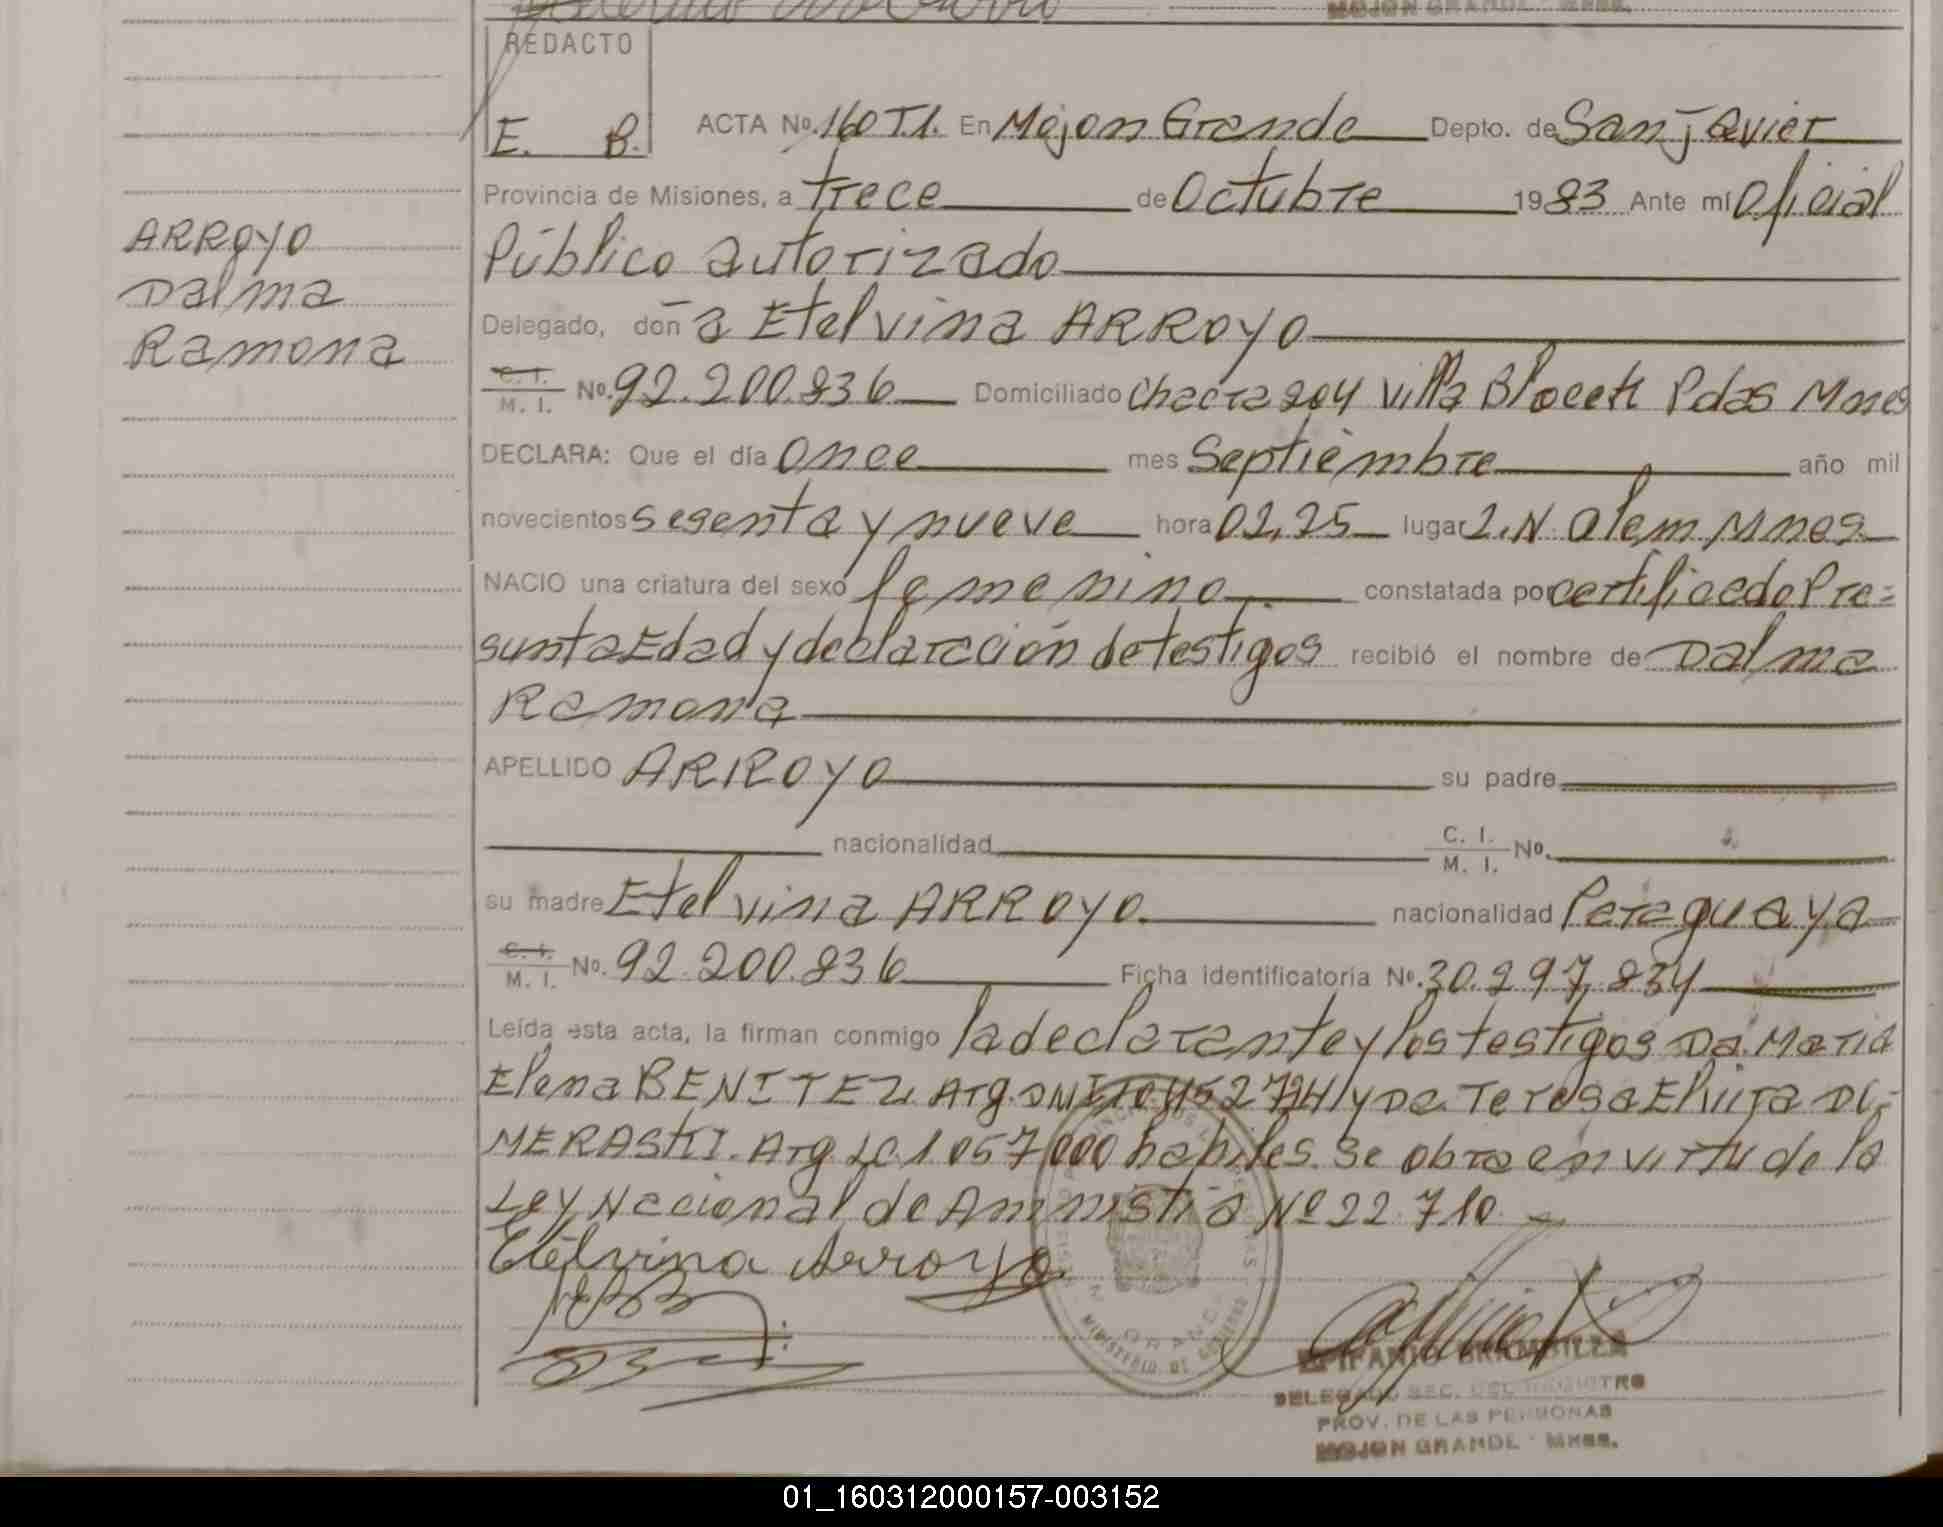 MOJON GRANDE - MNES.
REDACTO
E. B.
ACTA No. 160 T.I. En Mojon Grande Depto. de San Javier
Provincia de Misiones, a trece de Octubre 1983 Ante mí Oficial
Público autorizado
ARROYO
Dalma
Ramona
Delegado, don a Etelvina ARROYO
C. I. M. I. No. 92.200.836 Domiciliado Chacra 204 Villa Pdas Mnes
DECLARA: Que el día once mes Septiembre año mil
novecientos sesenta y nueve hora 02,25 lugar L.N. Alem Mnes.
NACIO una criatura del sexo femenino constatada por certificado Pre=
sunta Edad y declaración de testigos recibió el nombre de Dalma
Ramona
APELLIDO ARROYO su padre
nacionalidad C. I. M. I. No.
su madre Etelvina ARROYO. nacionalidad Paraguaya
C. I. M. I. No. 92.200.836 Ficha identificatoria No. 30.297.834
Leída esta acta, la firman conmigo la declarante y los testigos Da. Maria
Elena BENITEZ Arg. DNI y Da. Teresa Elvira DU-
MERASKI. Arg LC 1.057.000 habiles. Se obra en virtu de la
Ley Nacional de Amnistia Nº 22.710.
Etelvina Arroyo
MINISTERIO DE GOBIERNO
EPIFANIO BRAMBILLA
DELEGADO SEC. DEL REGISTRO
PROV. DE LAS PERSONAS
MOJON GRANDE - MNES.
01_160312000157-003152